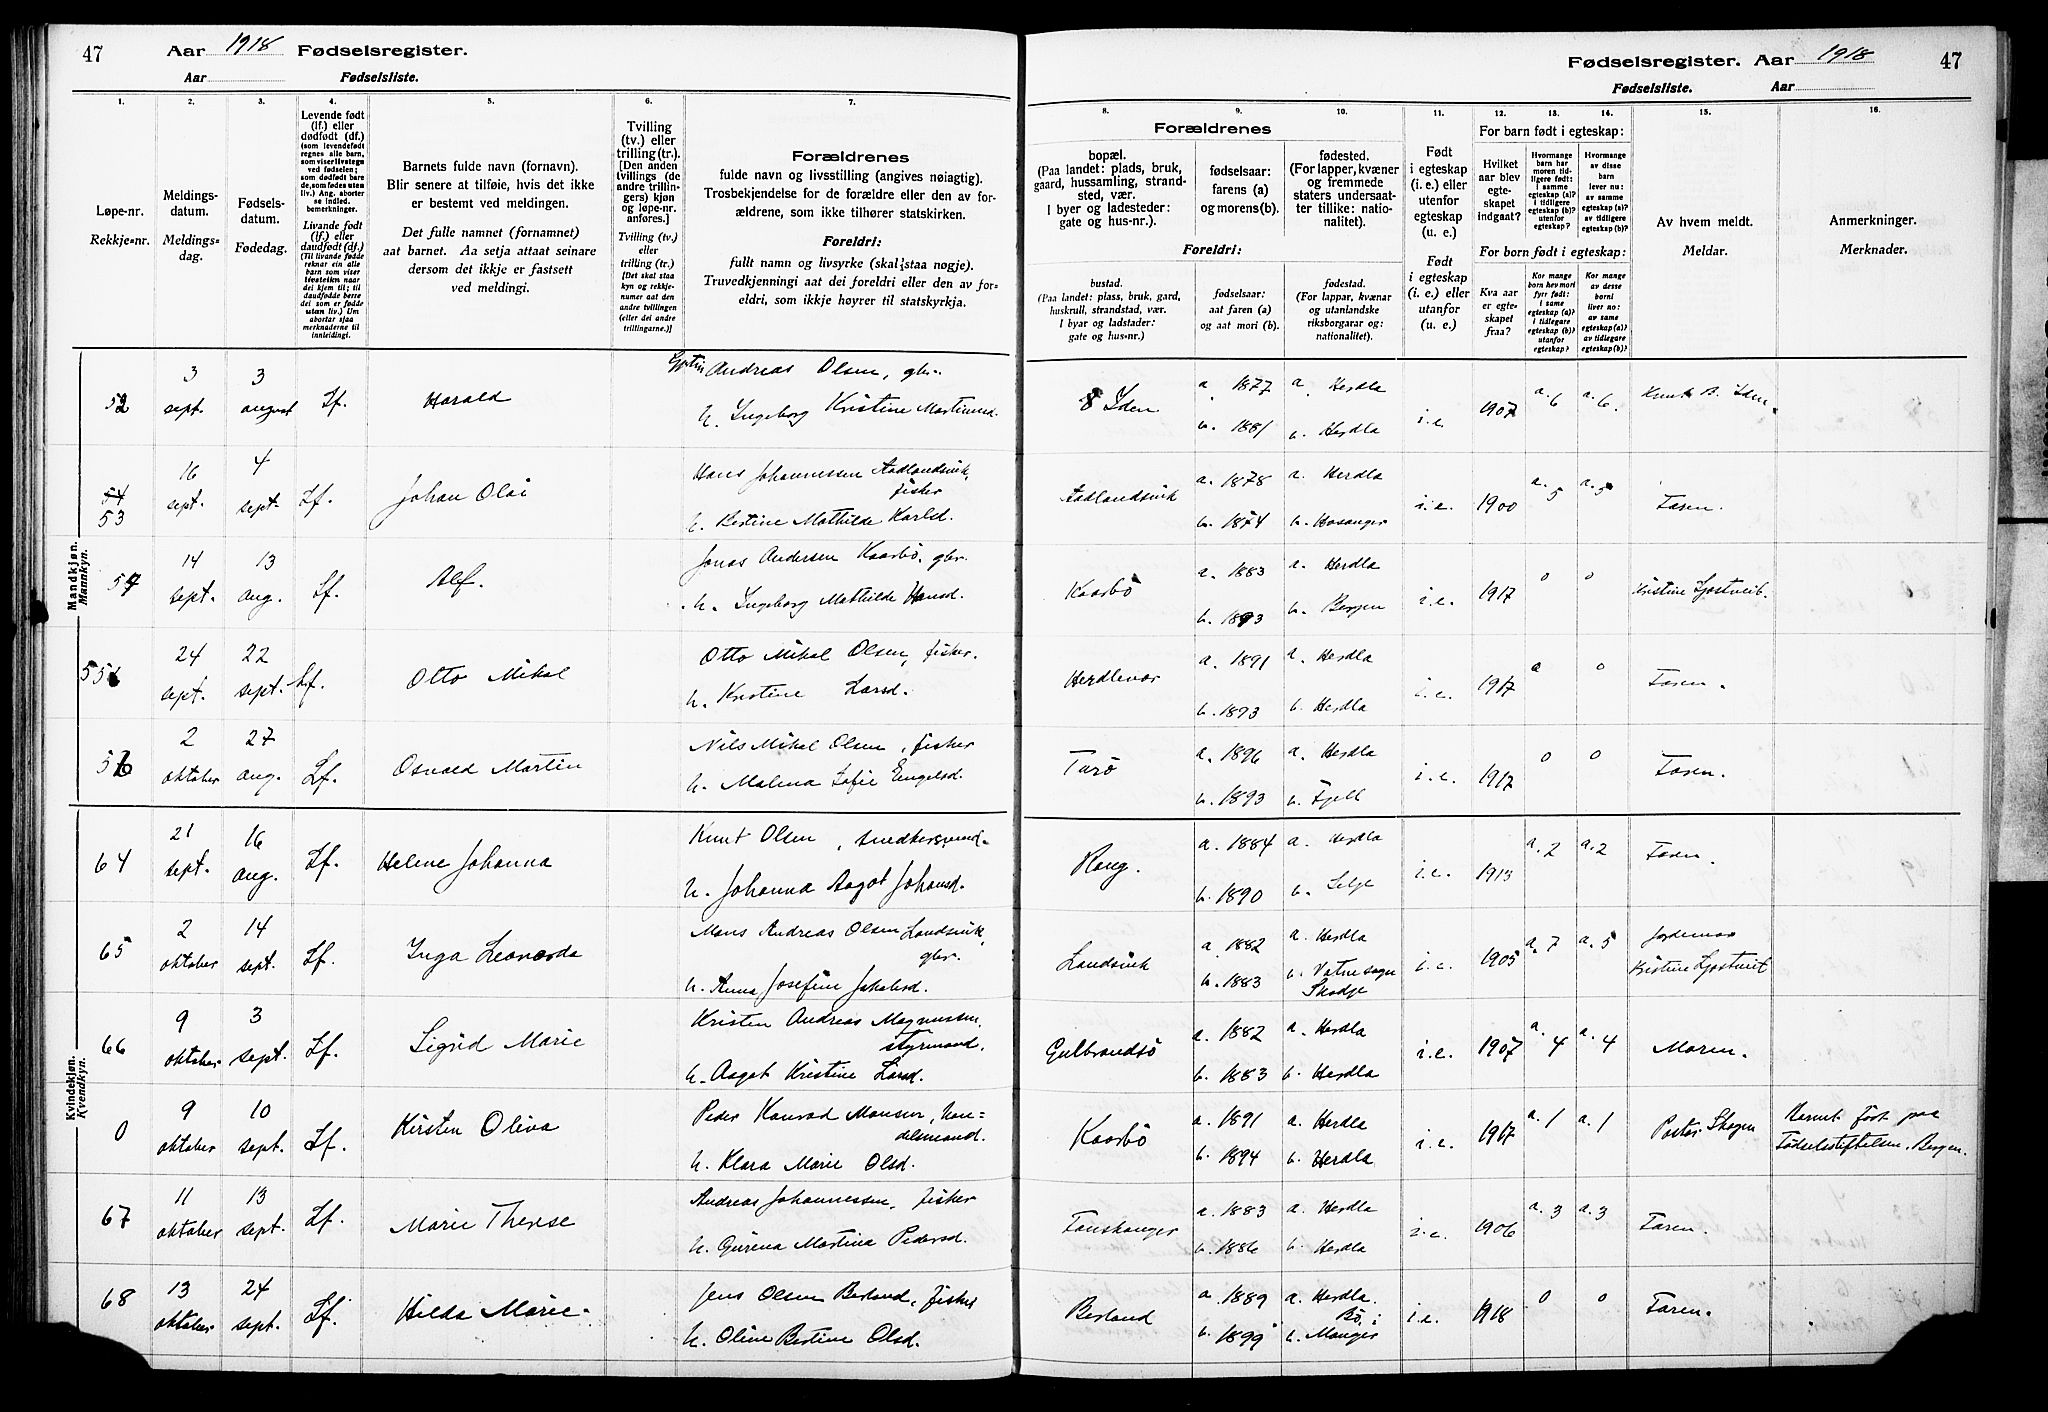 47 Aar 1918 Fødselsregister.
Aar Fødselsliste.
Fødselsregister. Aar 1918 47
Fødselsliste. Aar
1. 2. 3. 4. 5. 6. 7.
Løpe-nr.
Rekkje-nr.
Meldings-
datum.
Meldings-
dag.
Fødsels-
datum.
Fødedag.
Levende født
(lf.) eller
dødfødt (df.)
Livande født
(lf.) eller
daudfødt (df.)
Barnets fulde navn (fornavn).
Blir senere at tilføie, hvis det ikke
er bestemt ved meldingen.
Det fulle namnet (fornamnet)
aat barnet. Aa setja attaat seinare
dersom det ikkje er fastsett
ved meldingi.
Tvilling
(tv.) eller
trilling (tr.).
[Den anden
tvillings (de
andre trillin-
gers) kjøn
og løpe-nr.
anføres.]
Tvilling (tv.)
eller
trilling (tr.)
[Det skal staa
kyn og rekkje-
numer aat den
andre tvillingen
(eller dei andre
trillingarne.)]
Forældrenes
fulde navn og livsstilling (angives nøiagtig).
Trosbekjendelse for de forældre eller den av for-
ældrene, som ikke tilhører statskirken.
Foreldri:
fullt namn og livsyrke (skal staa nøgje).
Truvedkjenningi aat dei foreldri eller den av for-
eldri, som ikkje høyrer til statskyrkja.
8. 9. 10. 11. 12. 13. 14. 15. 16.
Forældrenes
bopæl.
(Paa landet: plads, bruk,
gaard, hussamling, strand-
sted, vær.
I byer og ladesteder:
gate og hus-nr.).
fødselsaar:
farens (a)
og morens (b).
fødested.
(For lapper, kvæner
og fremmede
staters undersaat-
ter tillike: natio-
nalitet).
Foreldri:
bustad.
(Paa landet: plass, bruk, gard,
huskrull, strandstad, vær.
I byar og ladstader:
gate og hus-nr.)
fødselsaar:
aat faren (a)
og aat mori (b).
fødestad.
(For lappar, kvænar
og utanlandske
riksborgarar og:
nationalitet).
Født
i egteskap
(i. e.) eller
utenfor
egteskap
(u. e.)
Født
i egteskap
(i. e.) eller
utanfor
(u. e.)
For barn født i egteskap:
Hvilket
aar blev
egte-
skapet
indgaat?
For born født i egteskap:
Kva aar
er egte-
skapet
fraa?
Av hvem meldt.
Meldar.
Anmerkninger.
Merknader.
Mandkjøn.
Mannkyn.
52 3 sept. 3 august Lf. Harald Andreas Olsen, gbr.
h. Ingeborg Kristine Martinusd.
8 Yden a. 1877 a. Herdla i.e. 1907 a. 6 a. 6. Knut B. Yden.
b. 1881 b. Herdla
54
53 16 sept. 4 sept. Lf. Johan Olai Hans Johannessen Aadlandsvik,
fisker
h. Bertine Mathilde Karlsd.
Aadlandsvik a. 1878 a. Herdla i.e. 1900 a. 5 a. 5 Faren.
b. 1874 b. Hosanger
54 14 sept. 13 aug. Lf. Alf. Jonas Andersen Kaarbø, gbr.
h. Ingeborg Mathilde Hansd.
Kaarbø a. 1883 a. Herdla i.e. 1917 0 0 Kristine Ljostveit.
b. 1893 b. Bergen
55 24 sept. 22 sept. Lf. Otto Mikal Otto Mikal Olsen, fisker.
h. Kristine Larsd.
Herdlevær a. 1891 a. Herdla i.e. 1917 0 0 Faren.
b. 1893 b. Herdla
56 2 oktober 27 aug. Lf. Osvald Martin Nils Mikal Olsen, fisker
h. Malena Sofie Engelsd.
Turø a. 1896 a. Herdla i.e. 1917 0 0 Faren.
b. 1893 b. Fjell
Kvindekjøn.
Kvendkyn.
64 21 sept. 16 aug. Lf. Helene Johanna Knut Olsen, snedkersvend.
h. Johanna Aagot Johansd.
Rong. a. 1884 a. Herdla i.e. 1913 a. 2 a. 2 Faren.
b. 1890 b. Selje
65 2 oktober 14 sept. Lf. Inga Leonarda Mons Andreas Olsen Landsvik,
gbr.
h. Anna Josefine Jakobsd.
Landsvik a. 1882 a. Herdla i.e. 1905 a. 7 a. 5 Jordemor
Kristine Ljostveit
b. 1883 b. Vatne sogn
Skodje
66 9 oktober 3 sept. Lf. Sigrid Marie Kristen Andreas Magnussen,
styrmand,
h. Aagot Kristine Larsd.
Gulbrandsø a. 1882 a. Herdla i.e. 1907 a. 4 a. 4 Moren.
b. 1883 b. Herdla
0 9 oktober 10 sept. Lf. Kirsten Oliva Peder Konrad Monsen, han=
delsmand.
h. Klara Marie Olsd.
Kaarbø a. 1891 a. Herdla i.e. 1917 a. 1 a. 1 Pastor Skagen født paa
Fødselsstiftelsen, Bergen.
b. 1894 b. Herdla
67 11 oktober 13 sept. Lf. Marie Therese Andreas Johannessen, fisker
h. Gurena Martina Pedersd.
Touskanger a. 1883 a. Herdla i.e. 1906 a. 3 a. 3 Faren.
b. 1886 b. Herdla
68 13 oktober 24 sept. Lf. Hilda Marie Jens Olsen Berland, fisker
h. Oline Bertine Olsd.
Berland a. 1889 a. Herdla. i.e. 1918 0 0 Faren.
b. 1899 b. Bø i
Manger